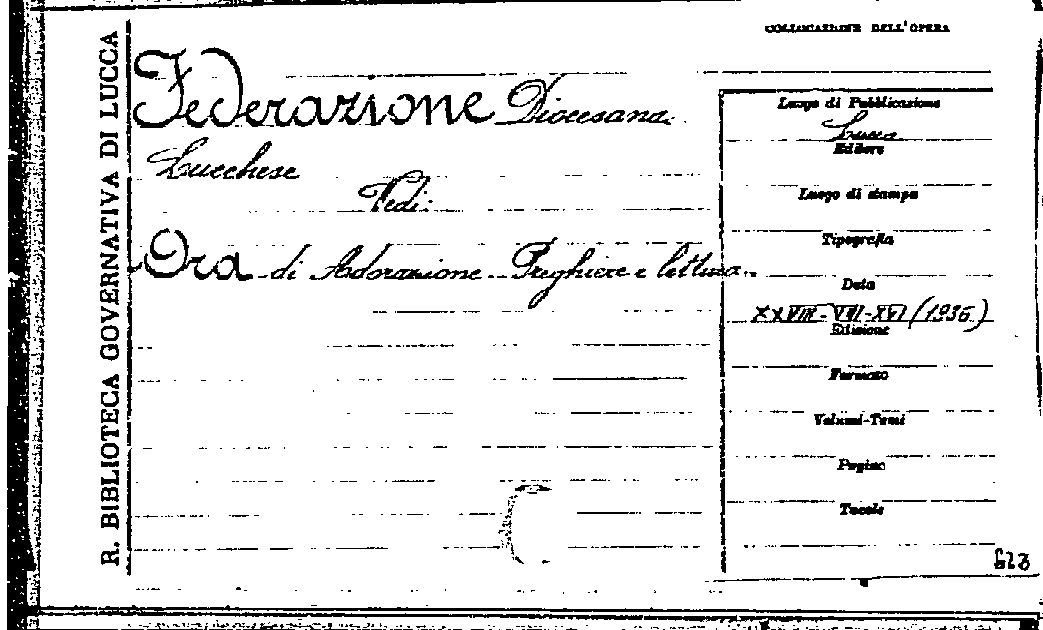 R. BIBLIOTECA GOVERNATIVA DI LUCCA
COLLOCAZIONE DELL'OPERA
Federazione Diocesana
Lucchese
Vedi:
Ora di Adorazione - Preghiere e lettura.
Luogo di Pubblicazione
Lucca
Editore
Luogo di stampa
Tipografia
Data
XXVIII-VIII-XVI (1936)
Edizione
Formato
Volumi-Tomi
Pagine
Tavole